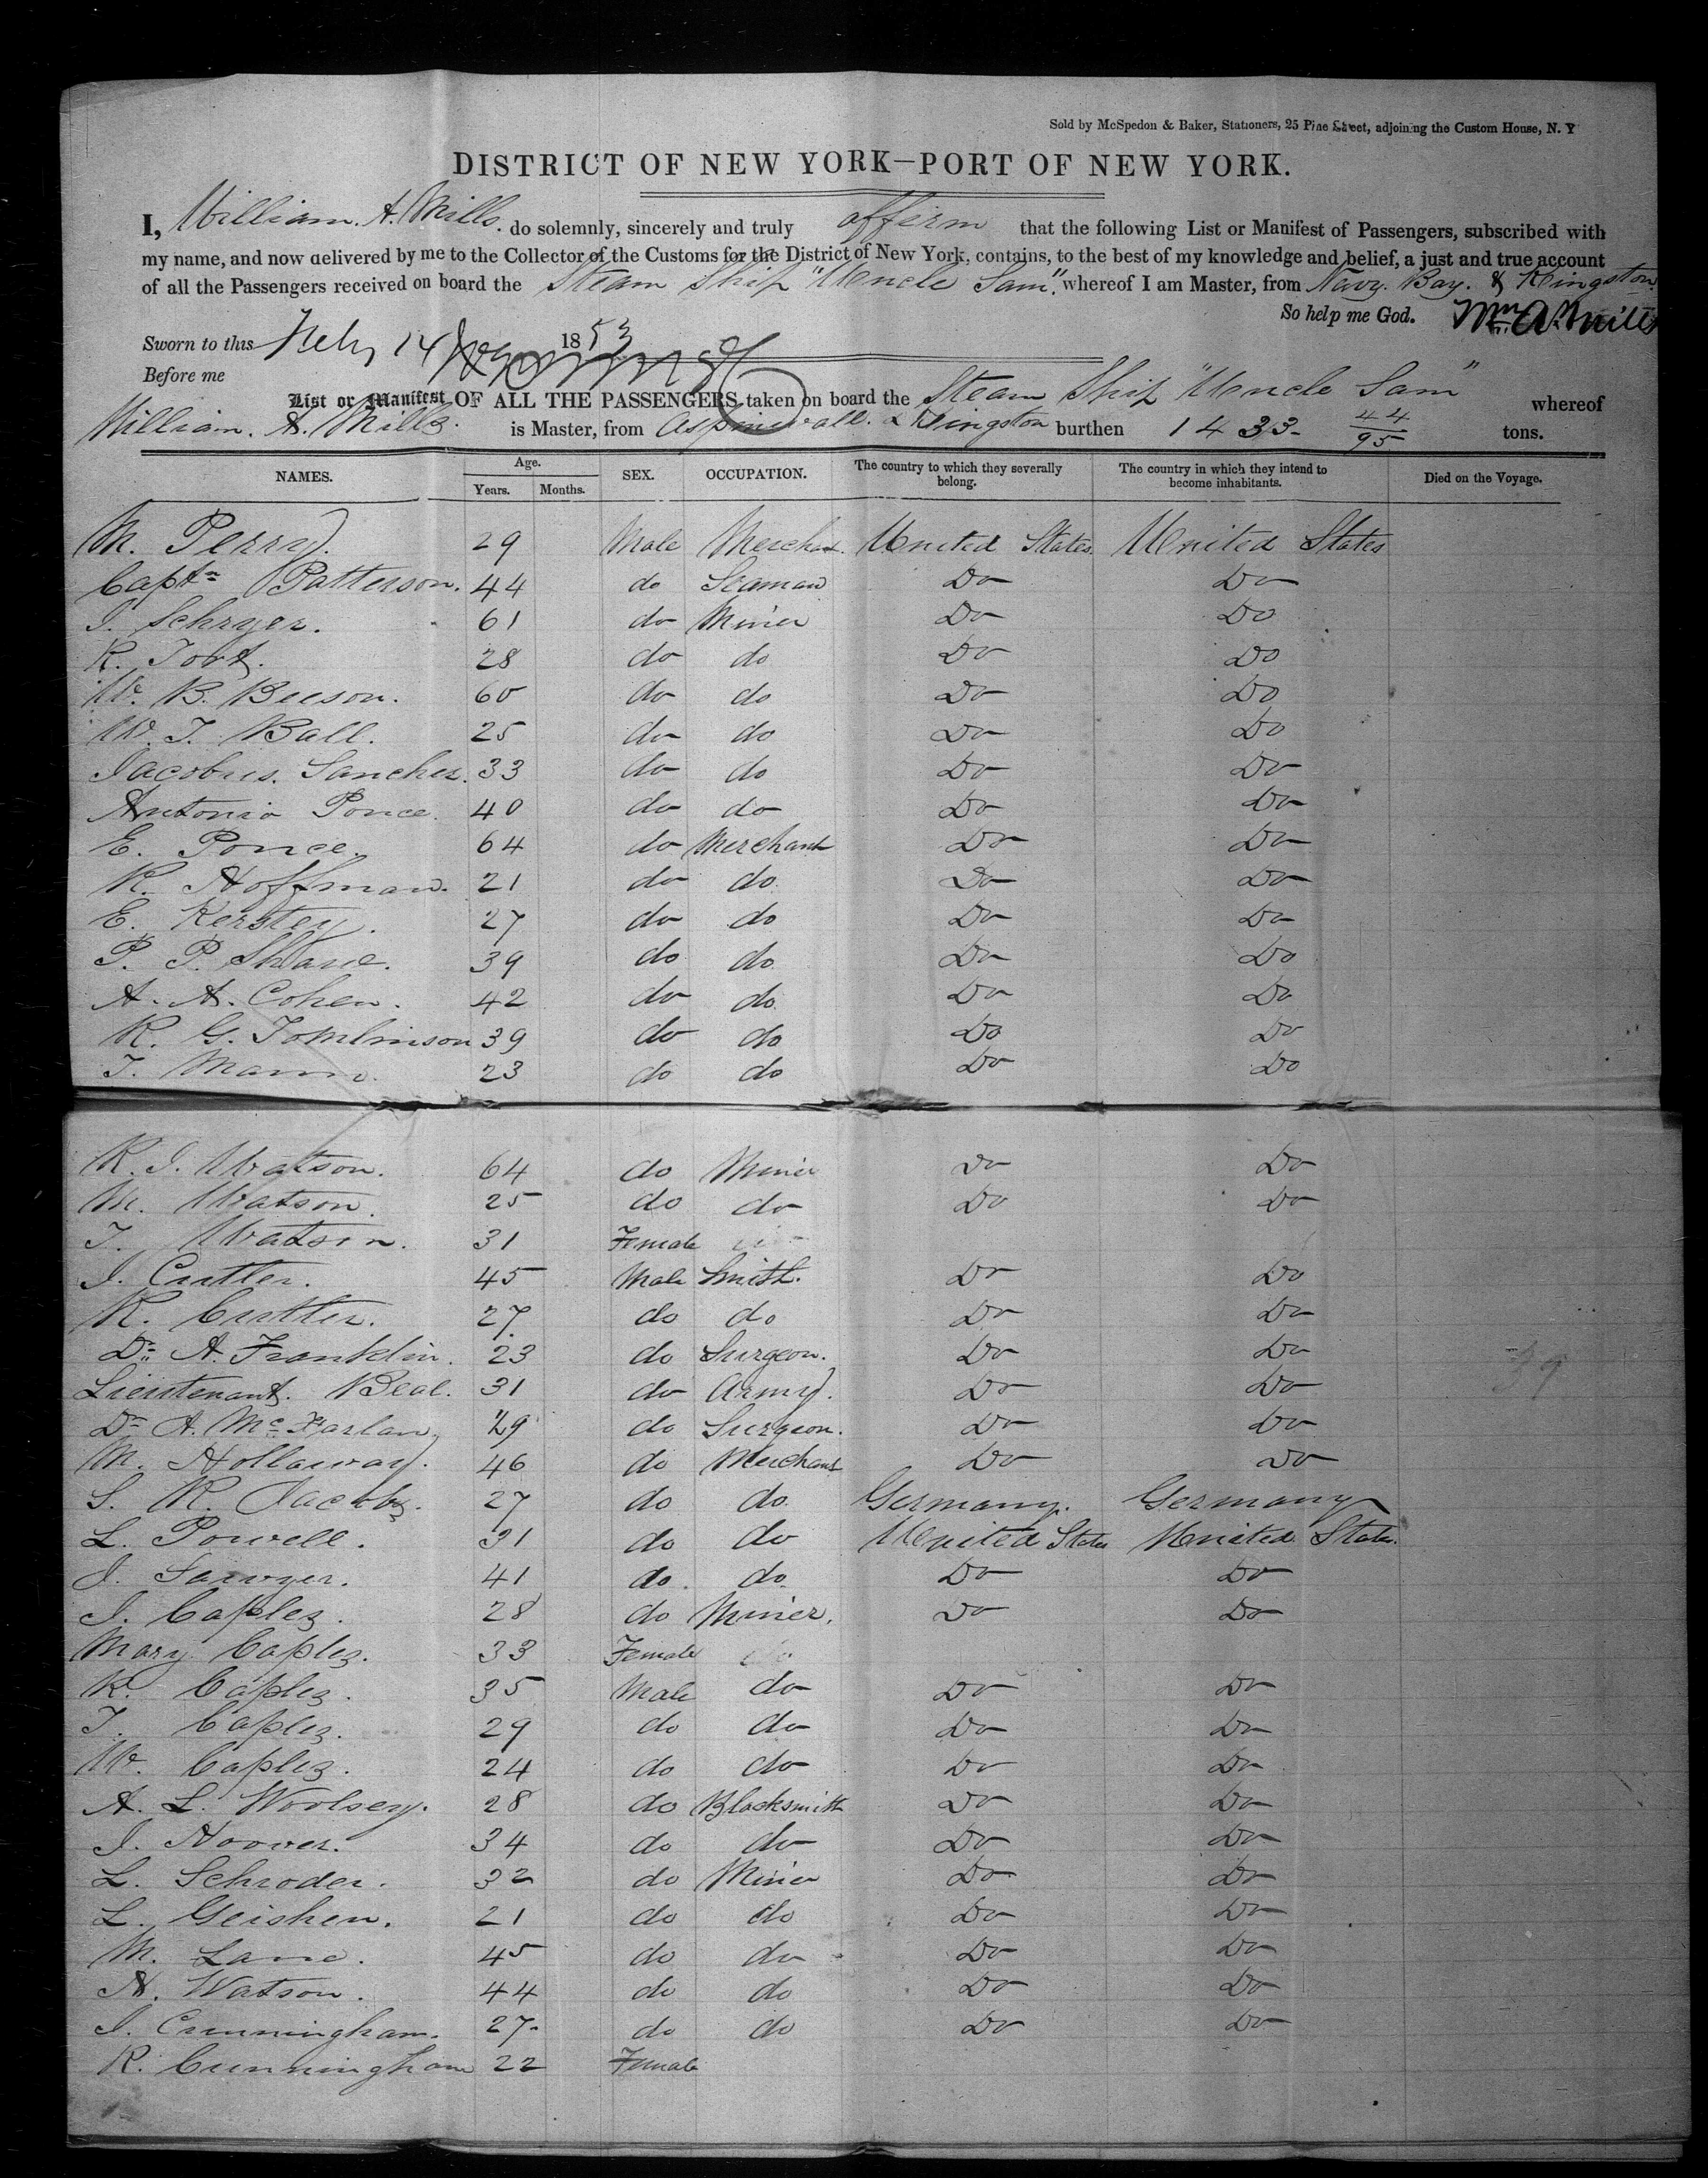 Sold by McSpedon & Baker, Stationers, 25 Pine Street, adjoining the Custom House, N. Y
DISTRICT OF NEW YORK—PORT OF NEW YORK.
I, William. A. Mills. do solemnly, sincerely and truly affirm that the following List or Manifest of Passengers, subscribed with
my name, and now delivered by me to the Collector of the Customs for the District of New York, contains, to the best of my knowledge and belief, a just and true account
of all the Passengers received on board the Steam Ship "Uncle Sam". whereof I am Master, from Navy. Bay. & Kingston.
So help me God. Wm A. Mills
Sworn to this Feby 14 1853
Before me
List or Manifest OF ALL THE PASSENGERS taken on board the Steam Ship "Uncle Sam" whereof
William. A. Mills. is Master, from Aspinwall. & Kingston burthen 1433- 44/95 tons.
NAMES. Age. Years. Months. SEX. OCCUPATION. The country to which they severally belong. The country in which they intend to become inhabitants. Died on the Voyage.
M. Perry. 29 Male Merchant. United States. United States
Captn Patterson. 44 do Seaman Do Do
I. Schryer. 61 do Miner Do Do
R. 28 do do Do Do
W. B. Beeson. 60 do do Do Do
W. T. Ball. 25 do do Do Do
Jacobus. Sanchez. 33 do do Do Do
Antonio Ponce. 40 do do Do Do
E. Ponce. 64 do Merchant Do Do
R. Hoffman. 21 do do Do Do
E. Kerstey. 27 do do Do Do
P. P. 39 do do Do Do
A. A. Cohen. 42 do do Do Do
R. G. Tomlinson 39 do do Do Do
T. Mann. 23 do do Do Do
R. I. Watson. 64 do Miner Do Do
M. Watson. 25 do do Do Do
T. Watson. 31 Female
I. Cutler. 45 Male Smith. Do Do
R. Cutler. 27. do do Do Do
Dr. A. Franklin. 23 do Surgeon. Do Do
Lieutenant. Beal. 31 do Army. Do Do
Dr A. McFarlan, 29 do Surgeon. Do Do
M. Hollaway. 46 do Merchant Do Do
S. R. Jacobs. 27 do do. Germany. Germany
L. Powell. 31 do do United States United States.
J. Sawyer. 41 do. do. Do Do
I. Caples. 28 do Miner. Do Do
Mary Caples. 33 Female
R. Caples. 35 Male do Do Do
T. Caples. 29 do do Do Do
W. Caples. 24 do do Do Do
A. L. Woolsey. 28 do Blacksmith Do Do
I. Hoover. 34 do do Do Do
L. Schroder. 32 do Miner Do Do
L. Geishen. 21 do do Do Do
M. Lane. 45 do do Do Do
N. Watson. 44 do do Do Do
I. Cunningham. 27. do do Do Do
R. Cunningham 22 Female